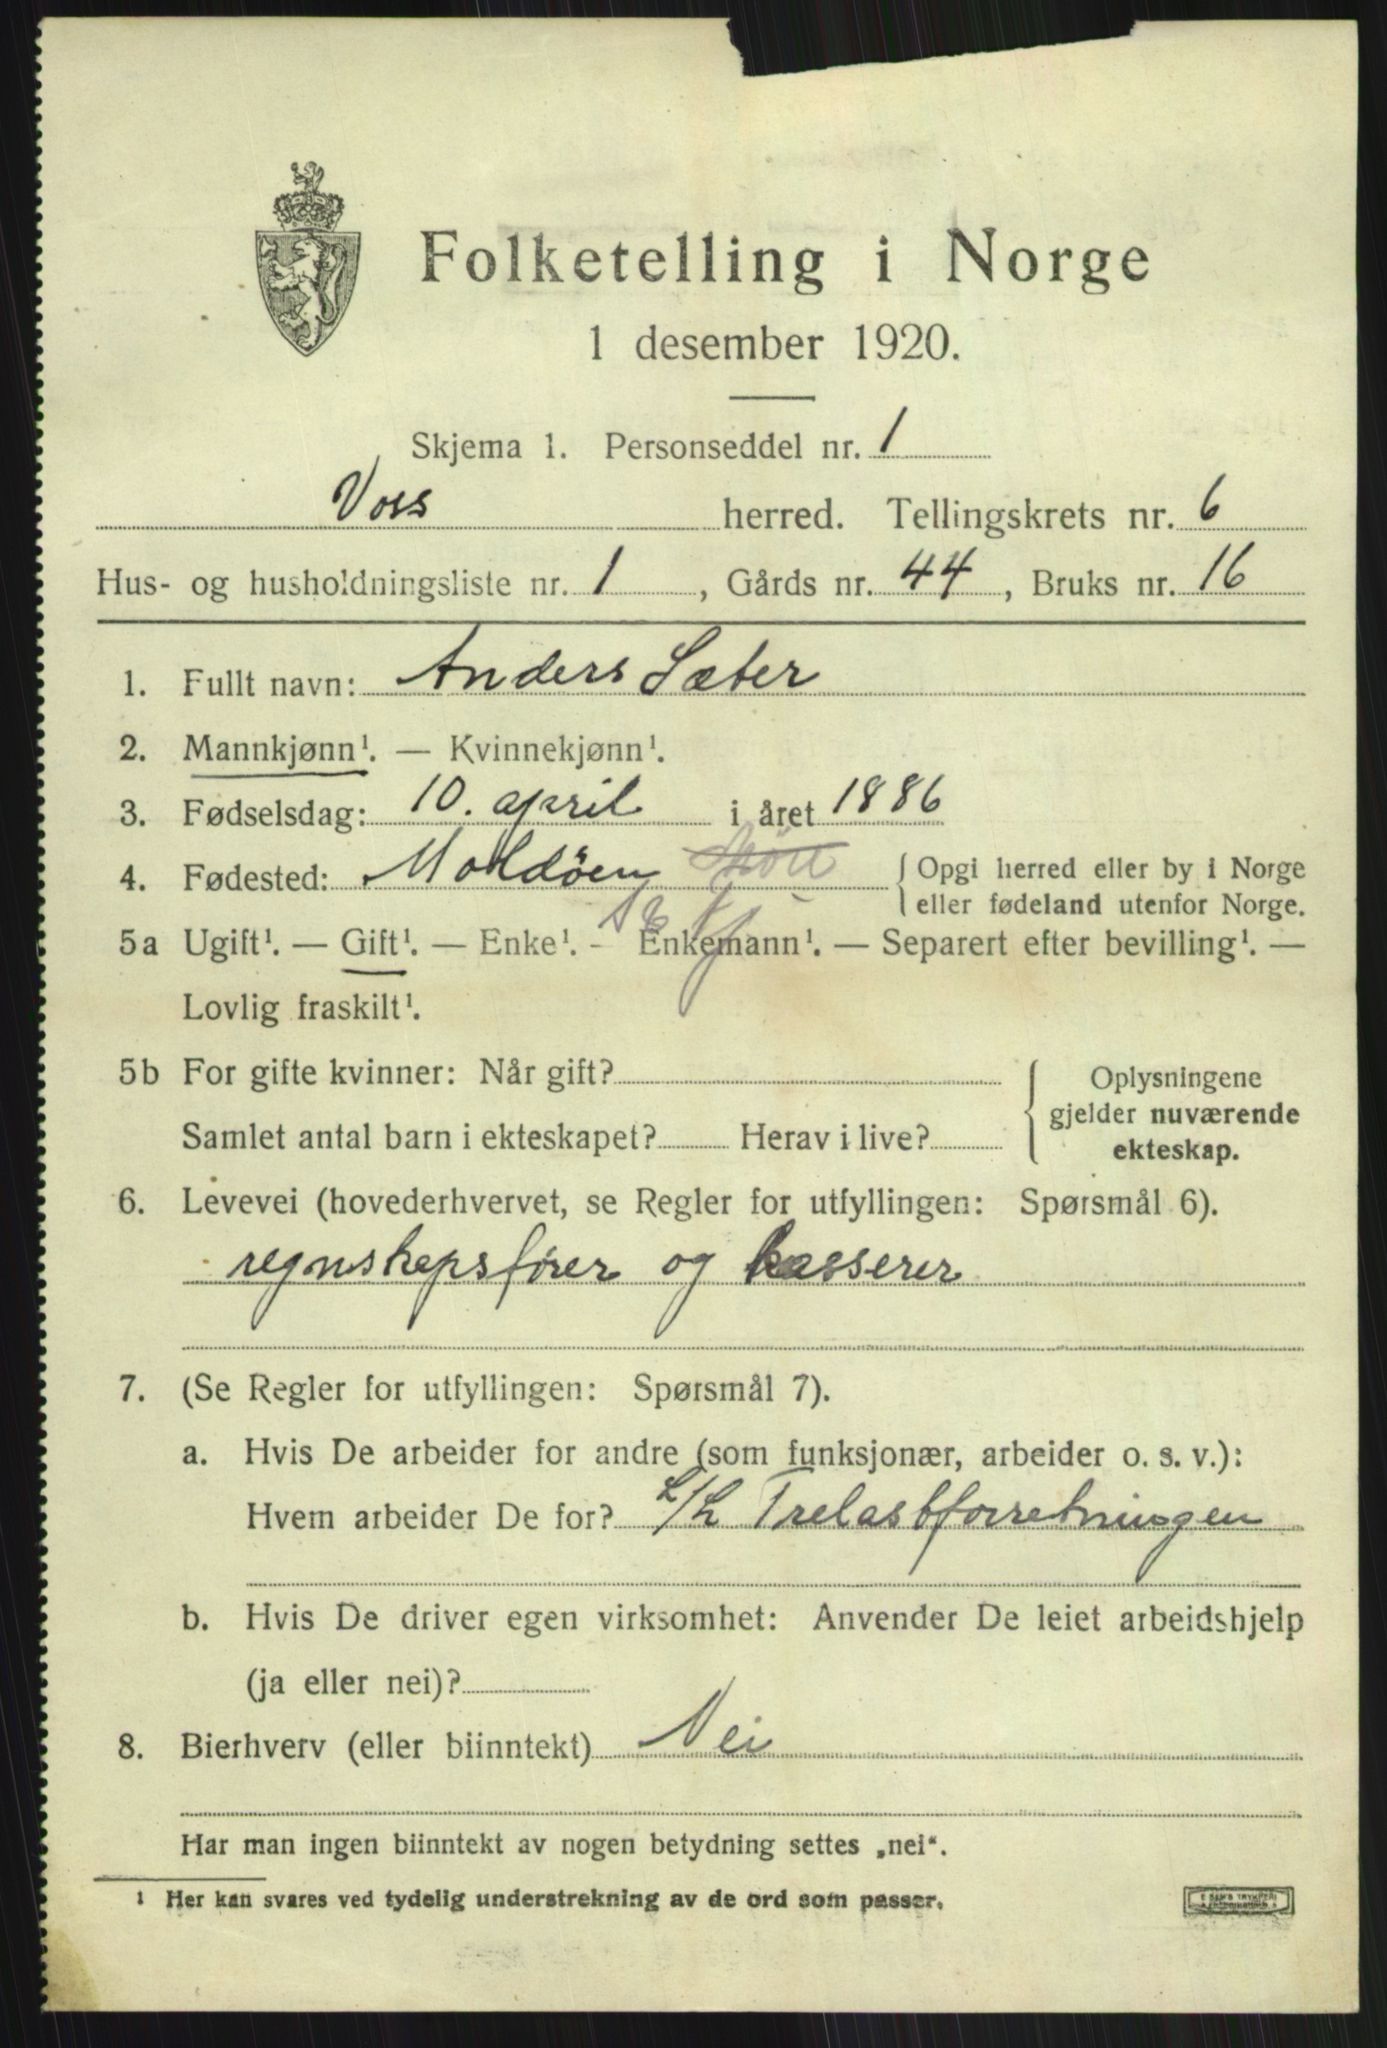 Folketelling i Norge
1 desember 1920.
Skjema 1. Personseddel nr. 1
Voss herred. Tellingskrets nr. 6
Hus- og husholdningsliste nr. 1, Gårds nr. 44, Bruks nr. 16
1. Fullt navn: Anders Sæter
2. Mannkjønn¹. — Kvinnekjønn¹.
3. Fødselsdag: 10. april i året 1886
4. Fødested: Moldöen { Opgi herred eller by i Norge
eller fødeland utenfor Norge.
5a Ugift¹. — Gift¹. — Enke¹. - Enkemann¹. — Separert efter bevilling¹. —
Lovlig fraskilt¹.
5b For gifte kvinner: Når gift? { Oplysningene
gjelder nuværende
Samlet antal barn i ekteskapet? Herav i live?
ekteskap.
6. Levevei (hovederhvervet, se Regler for utfyllingen: Spørsmål 6).
regnskapsfører og kasserer
7. (Se Regler for utfyllingen: Spørsmål 7).
a. Hvis De arbeider for andre (som funksjonær, arbeider o. s. v.):
Hvem arbeider De for? L/L Trelastforretningen
b. Hvis De driver egen virksomhet: Anvender De leiet arbeidshjelp
(ja eller nei)?
8. Bierhverv (eller biinntekt) Nei
Har man ingen biinntekt av nogen betydning settes „nei“.
¹ Her kan svares ved tydelig understrekning av de ord som passer.